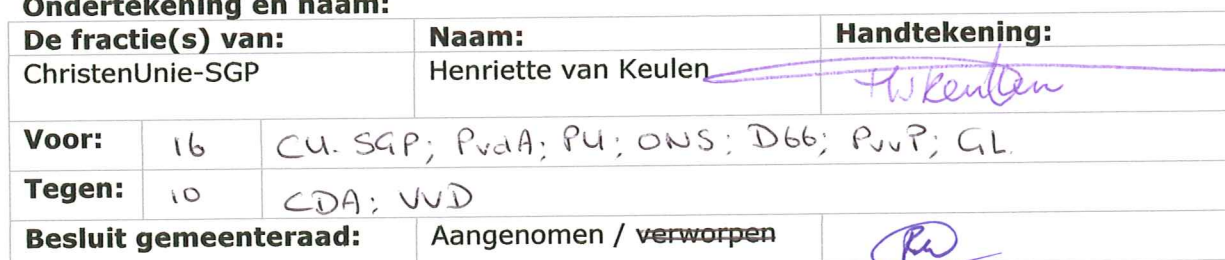 Ondertekening en naam:
De fractie(s) van: Naam: Handtekening:
ChristenUnie-SGP Henriette van Keulen HvKeulen
Voor: 16 CU. SGP; PvdA; PU; ONS; D66; PvvP; GL.
Tegen: 10 CDA; VVD
Besluit gemeenteraad: Aangenomen / verworpen